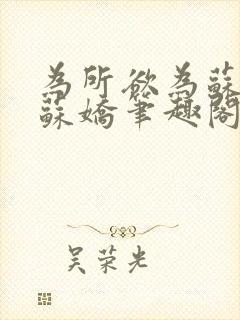 為所欲為蘇
蘇嬌筆趣閣
吴荣光